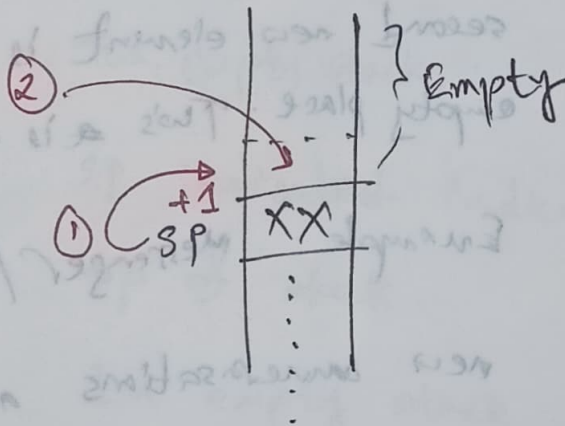 ②
Empty
+1
① SP
XX